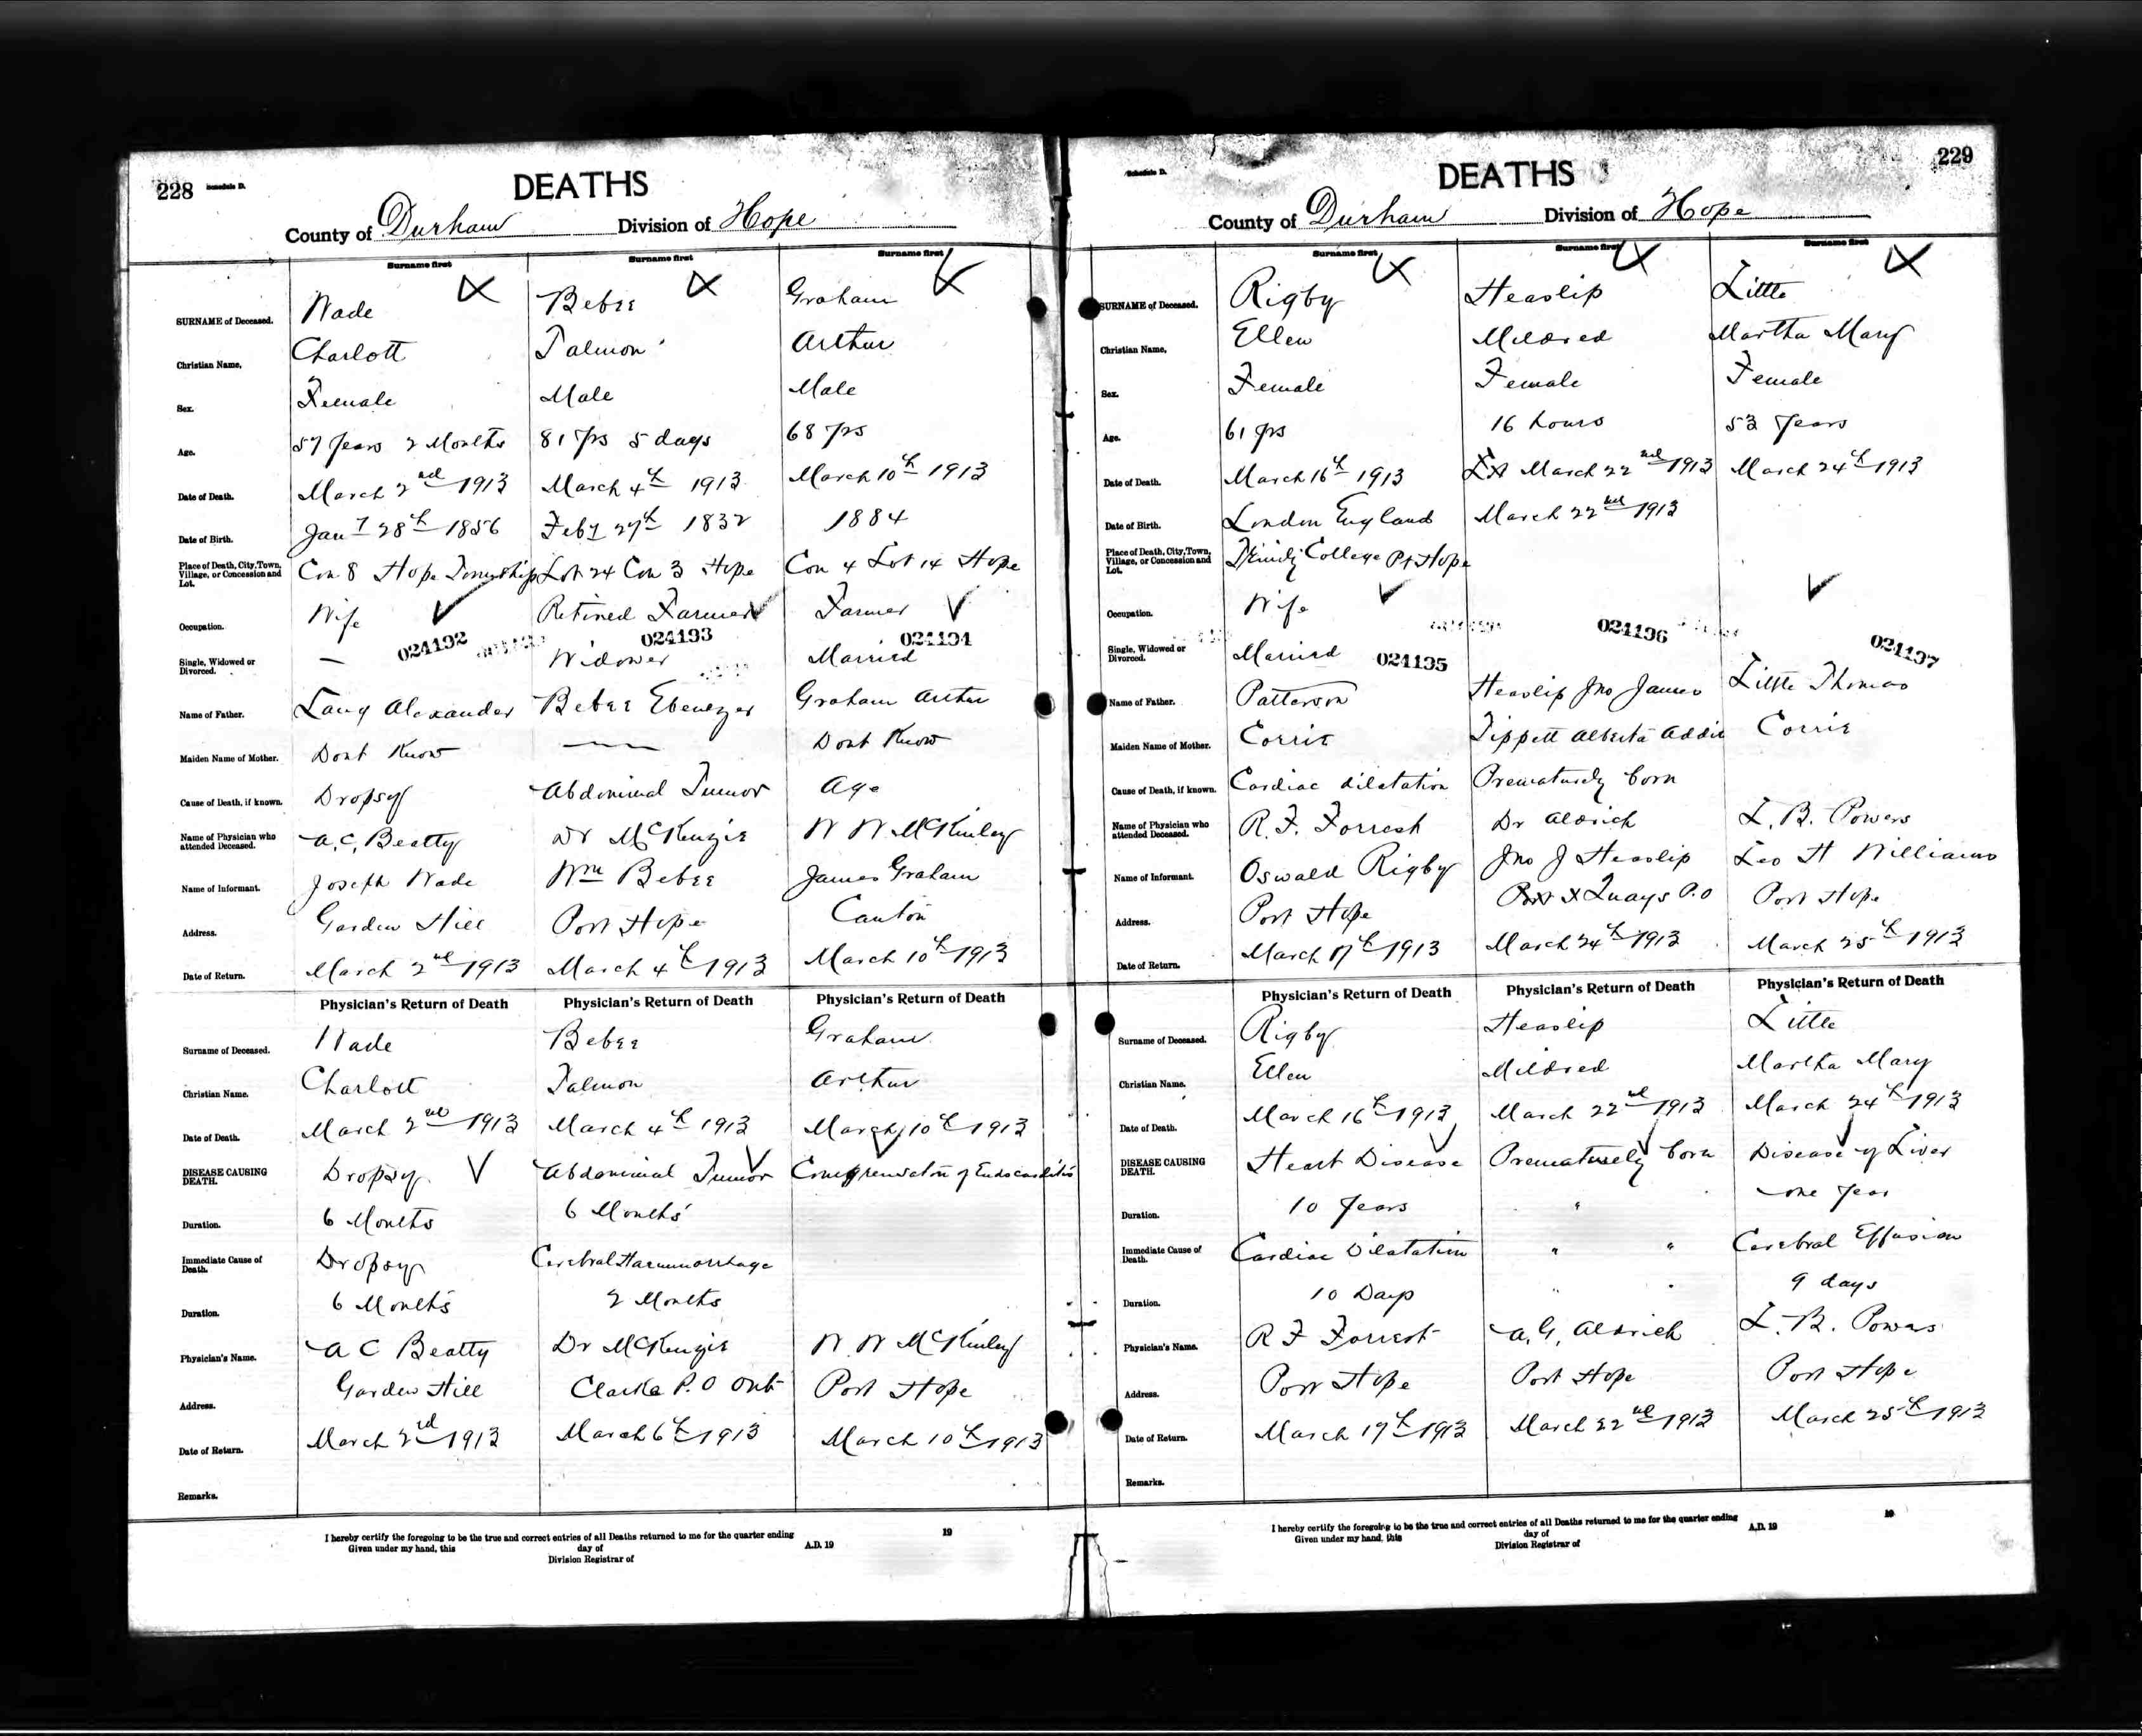 228 Schedule D. DEATHS
County of Durham Division of Hope
Surname first Surname first Surname first
SURNAME of Deceased. Wade Bebee Graham
Christian Name, Charlott Talmon Arthur
Sex. Female Male Male
Age. 57 Years 2 Months 81 yrs 5 days 68 yrs
Date of Death. March 2nd 1913 March 4th 1913 March 10th 1913
Date of Birth. Jany 28th 1856 Feby 27th 1832 1884
Place of Death, City, Town, Village, or Concession and Lot. Con 8 Hope Township Lot 24 Con 3 Hope Con 4 Lot 14 Hope
Occupation. Wife Retired Farmer Farmer
024192 024193 024194
Single, Widowed or Divorced. — Widower Married
Name of Father. Lang Alexander Bebee Ebenezer Graham Arthur
Maiden Name of Mother. Dont Know — Dont Know
Cause of Death, if known. Dropsy Abdominal Tumor Age
Name of Physician who attended Deceased. A. C. Beatty Dr McKenzie W W McKinley
Name of Informant. Joseph Wade Wm Bebee James Graham
Address. Garden Hill Port Hope Canton
Date of Return. March 2nd 1913 March 4th 1913 March 10th 1913
Physician's Return of Death Physician's Return of Death Physician's Return of Death
Surname of Deceased. Wade Bebee Graham
Christian Name. Charlott Talmon Arthur
Date of Death. March 2nd 1913 March 4th 1913 March 10th 1913
DISEASE CAUSING DEATH. Dropsy Abdominal Tumor of Endocarditis
Duration. 6 Months 6 Months
Immediate Cause of Death. Dropsy Cerebral Haemmorrhage
Duration. 6 Months 2 Months
Physician's Name. A C Beatty Dr McKenzie W. W McKinley
Address. Garden Hill Clarke P.O Ont Port Hope
Date of Return. March 2nd 1913 March 6th 1913 March 10th 1913
Remarks.
I hereby certify the foregoing to be the true and correct entries of all Deaths returned to me for the quarter ending 19
Given under my hand, this day of A.D. 19
Division Registrar of
Schedule D. DEATHS 229
County of Durham Division of Hope
Surname first Surname first Surname first
SURNAME of Deceased. Rigby Heaslip Little
Christian Name, Ellen Mildred Martha Mary
Sex. Female Female Female
Age. 61 yrs 16 hours 53 Years
Date of Death. March 16th 1913 March 22nd 1913 March 24th 1913
Date of Birth. London England March 22nd 1913
Place of Death, City, Town, Village, or Concession and Lot. Trinity College Pt Hope
Occupation. Wife
024195 024196 024197
Single, Widowed or Divorced. Married
Name of Father. Patterson Heaslip Jno James Little Thomas
Maiden Name of Mother. Corrie Tippett Alberta Addie Corrie
Cause of Death, if known. Cardiac dilatation Prematurely born
Name of Physician who attended Deceased. R. F. Forrest Dr Aldrich L. B. Powers
Name of Informant. Oswald Rigby Jno J Heaslip Leo H Williams
Address. Port Hope Quays P.O Port Hope
Date of Return. March 17th 1913 March 24th 1913 March 25th 1913
Physician's Return of Death Physician's Return of Death Physician's Return of Death
Surname of Deceased. Rigby Heaslip Little
Christian Name. Ellen Mildred Martha Mary
Date of Death. March 16th 1913 March 22nd 1913 March 24th 1913
DISEASE CAUSING DEATH. Heart Disease Prematurely born Disease of Liver
Duration. 10 Years " one Year
Immediate Cause of Death. Cardiac Dilatation " " Cerebral Effusion
Duration. 10 Days " " 9 days
Physician's Name. R F Forrest A. G. Aldrich L. B. Powers
Address. Port Hope Port Hope Port Hope
Date of Return. March 17th 1913 March 22nd 1913 March 25th 1913
Remarks.
I hereby certify the foregoing to be the true and correct entries of all Deaths returned to me for the quarter ending 19
Given under my hand, this day of A.D. 19
Division Registrar of